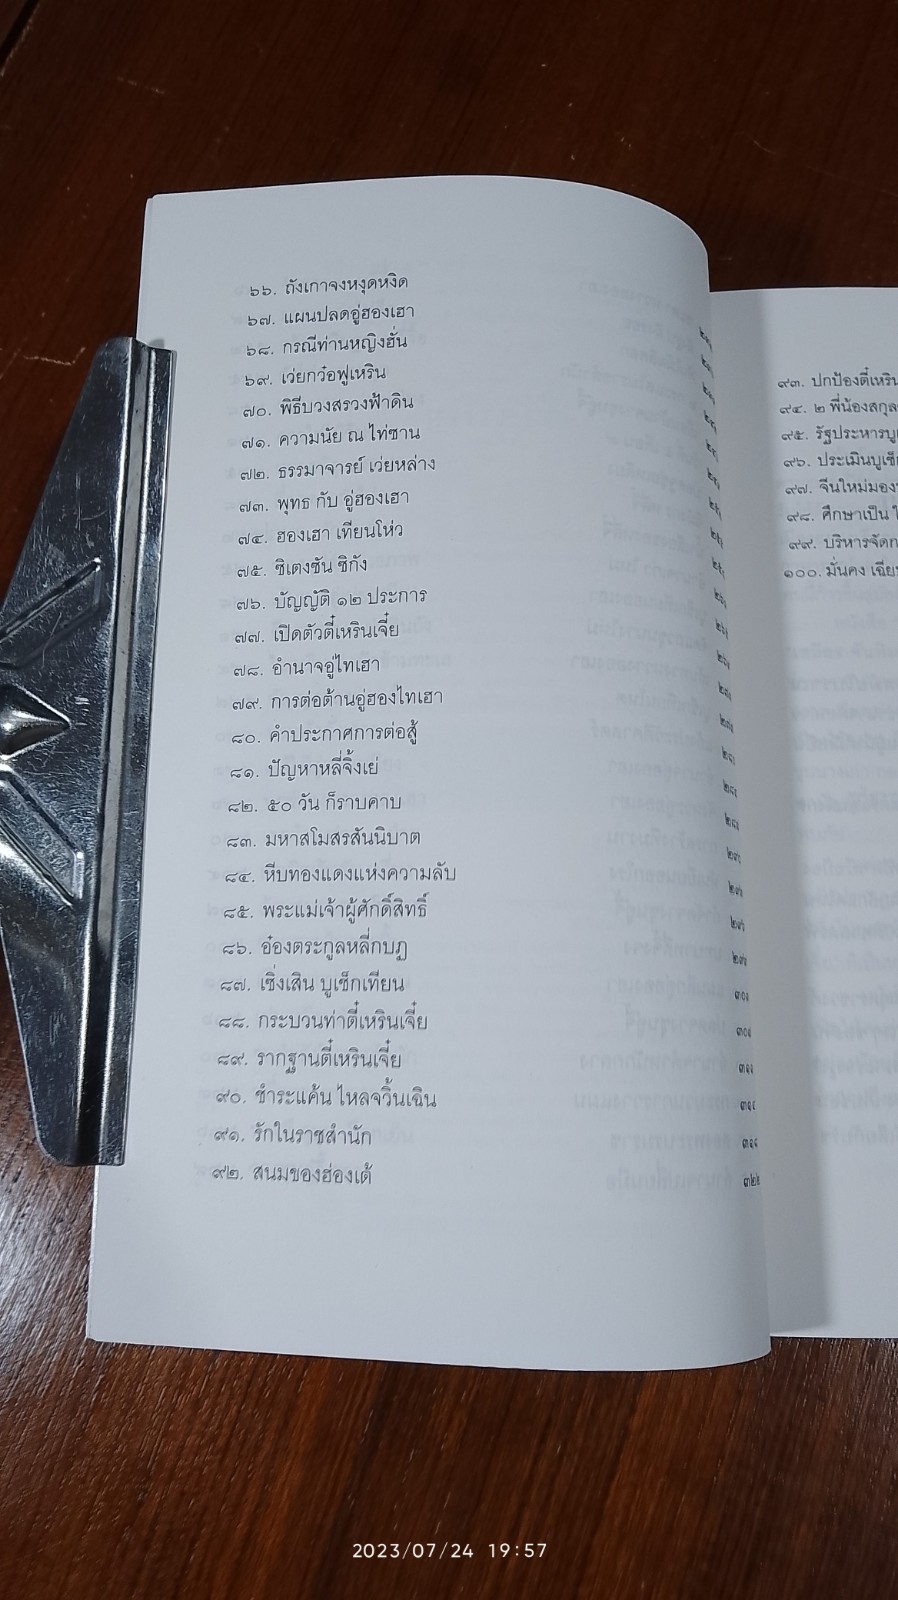 ๖๖. ถังเกาจงหงุดหงิด
๖๗. แผนปลดอู่ฮองเฮา
๖๘. กรณีท่านหญิงฮั่น
๖๙. เว่ยกว๋อฟูเหริน
๗๐. พิธีบวงสรวงฟ้าดิน
๗๑. ความนัย ณ ไท่ซาน
๗๒. ธรรมาจารย์ เว่ยหล่าง
๗๓. พุทธ กับ อู่ฮองเฮา
๗๔. ฮองเฮา เทียนโห่ว
๗๕. ซิเตงซัน ซิกัง
๗๖. บัญญัติ ๑๒ ประการ
๗๗. เปิดตัวตี๋เหรินเจี๋ย
๗๘. อำนาจอู่ไทเฮา
๗๙. การต่อต้านอู่ฮองไทเฮา
๘๐. คำประกาศการต่อสู้
๘๑. ปัญหาหลี่จิ้งเย่
๘๒. ๕๐ วัน ก็ราบคาบ
๘๓. มหาสโมสรสันนิบาต
๘๔. หีบทองแดงแห่งความลับ
๘๕. พระแม่เจ้าผู้ศักดิ์สิทธิ์
๘๖. อ๋องตระกูลหลี่กบฏ
๘๗. เซิ่งเสิน บูเช็กเทียน ๓๐๑
๘๘. กระบวนท่าตี๋เหรินเจี๋ย
๘๙. รากฐานตี๋เหรินเจี๋ย
๙๐. ชำระแค้น ไหลจวิ้นเฉิน
๙๑. รักในราชสำนัก
๙๒. สนมของฮ่องเต้ ๓๒๒
๙๓. ปกป้องตี๋เหริน
๙๔. ๒ พี่น้องสกุล
๙๕. รัฐประหารบู
๙๖. ประเมินบูเช็
๙๗. จีนใหม่มอง
๙๘. ศึกษาเป็น
๙๙. บริหารจัดก
๑๐๐. มั่นคง เฉีย
2023/07/24 19:57